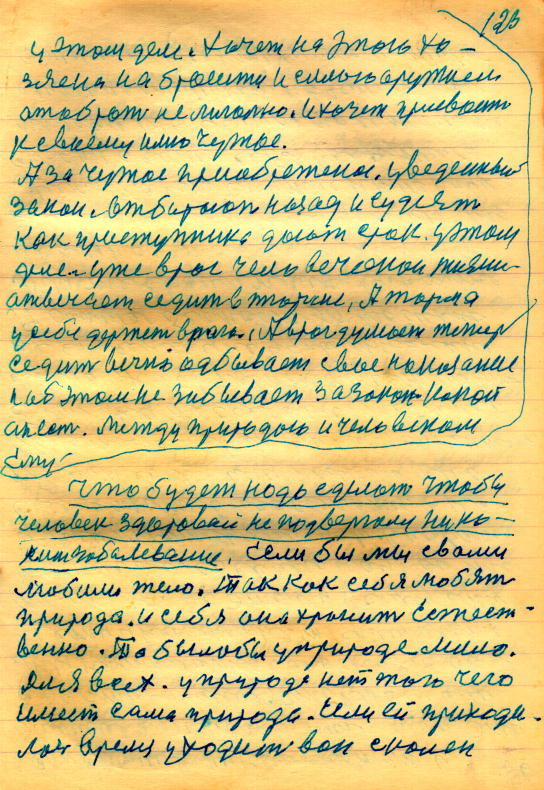 123
у этом деле. Хочет на этого хо-
зяена набросити и силою оружием
отобрать не легально. И хочет присвоить
к евоему имю чужое.
А за чужое приобретеное. уведенный
закон. отбирают назад и судеят
как приступника дают срок. у этом
деле. уже враг человеческой жизни
отвичает седит в тюрме, А тюрма
у себе держет врага. А враг думает тепер
седит вечно одбывает свое наказание
и об этом не забывает за закон. какой
ест. Между природою и человеком
ему.
Что будет надо сделать чтобы
человек здоровай не подвергалси ника-
ким заболевание. Если бы мы свами
любили тело. Так как себя любят
природа. и себя она хранит естест-
венно. То было бы у природе мило.
для всех. у природе нет того чего
имеет сама природа. Если ей приходи-
лось время уходит вон сколен